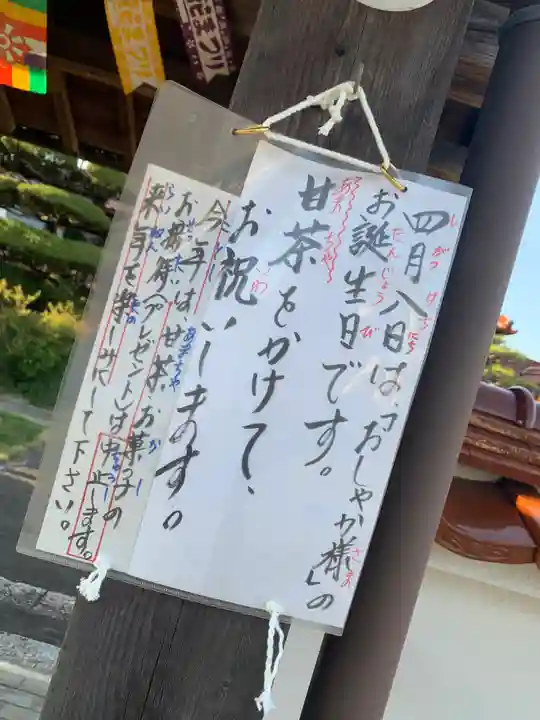 四月八日は、「おしゃか様」の
お誕生日です。
甘茶をかけて、
お祝いします。
今年は、甘茶、お菓子の
お接待(プレゼント)は中止します。
来年を楽しみにして下さい。